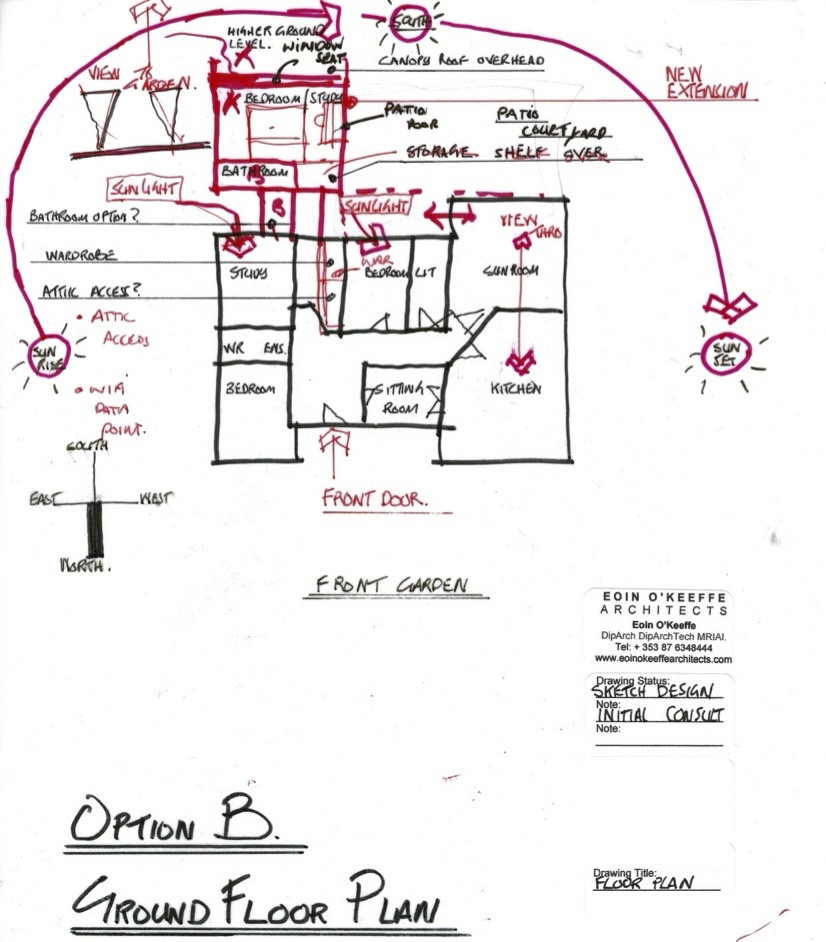 HIGHER GROUND
LEVEL.
WINDOW
SEAT
SOUTH
CANOPY ROOF OVERHEAD
VIEW
TO
GARDEN.
NEW
EXTENSION
BEDROOM
STUDY
PATIO
DOOR
PATIO
COURTYARD
STORAGE SHELF OVER
BATHROOM
SUNLIGHT
SUNLIGHT
BATHROOM OPTION?
B
VIEW
THRO
WARDROBE
WAR
STUDY
BEDROOM
LIT
SUNROOM
ATTIC ACCESS?
• ATTIC
ACCESS
SUN
RISE
WR
ENS.
SUN
SET
BEDROOM
SITTING
ROOM
KITCHEN
• WIFI
DATA
POINT.
SOUTH
EAST
WEST
NORTH.
FRONT DOOR.
FRONT GARDEN
EOIN O'KEEFFE
ARCHITECTS
Eoin O'Keeffe
DipArch DipArchTech MRIAI.
Tel: + 353 87 6348444
www.eoinokeeffearchitects.com
Drawing Status:
SKETCH DESIGN
Note:
INITIAL CONSULT
Note:
Drawing Title:
FLOOR PLAN
OPTION B.
GROUND FLOOR PLAN